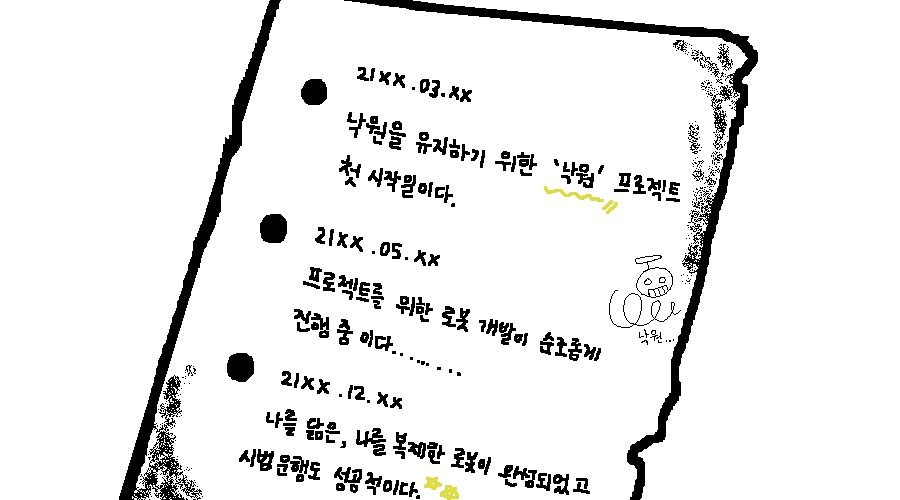 21XX.03.XX
낙원을 유지하기 위한 '낙원' 프로젝트
첫 시작일이다.
21XX.05.XX
프로젝트를 위한 로봇 개발이 순조롭게
진행 중 이다.........
낙원...
21XX.12.XX
나를 닮은, 나를 복제한 로봇이 완성되었고
시범운행도 성공적이다.